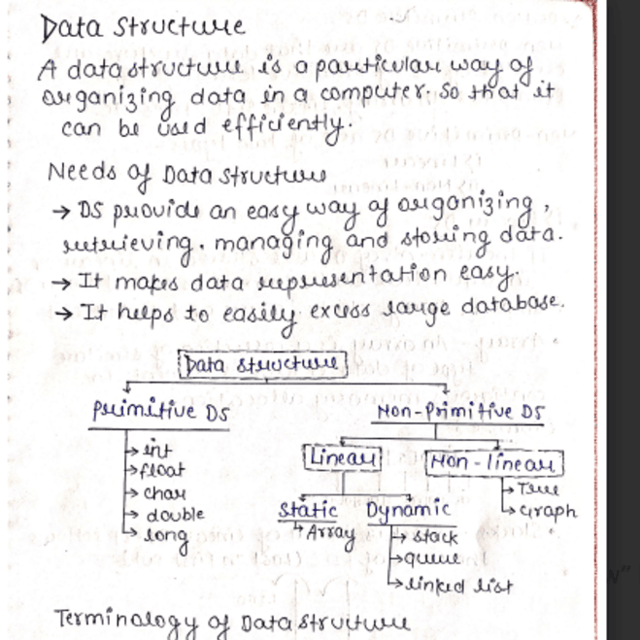 Data Structure
A datastructure is a particular way of
organizing data in a computer. so that it
can be used efficiently.
Needs of Data Structure
→ DS provide an easy way of organizing,
retrieving, managing and storing data.
→ It makes data representation easy.
→ It helps to easily excess large database.
Data structure
Primitive DS
Non-Primitive DS
→ int
→ float
→ char
→ double
→ long
Linear
Non-linear
→ Tree
→ Graph
Static
↳ Array
Dynamic
→ stack
→ queue
→ linked list
Terminology of Data Structure